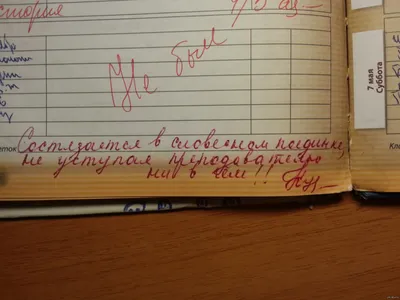 история
Не был
7 мая
Суббота
Состязается в словесном поединке,
не уступая преподавателю
ни в чем!!